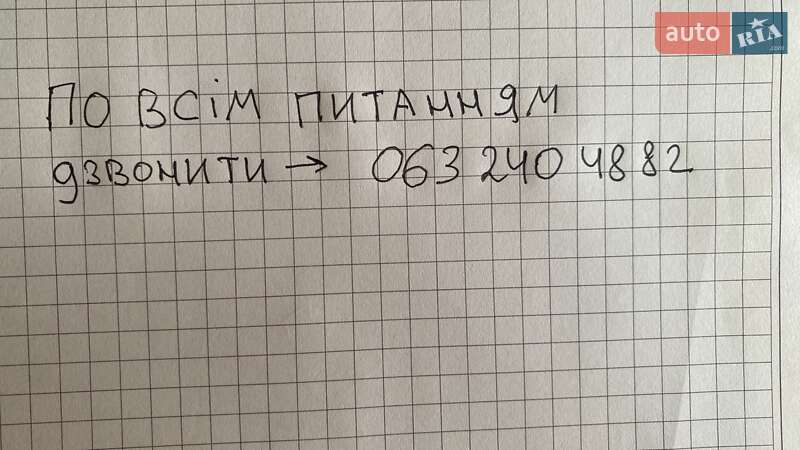 auto RIA.com
ПО ВСІМ ПИТАННЯМ
ДЗВОНИТИ → 063 240 4882